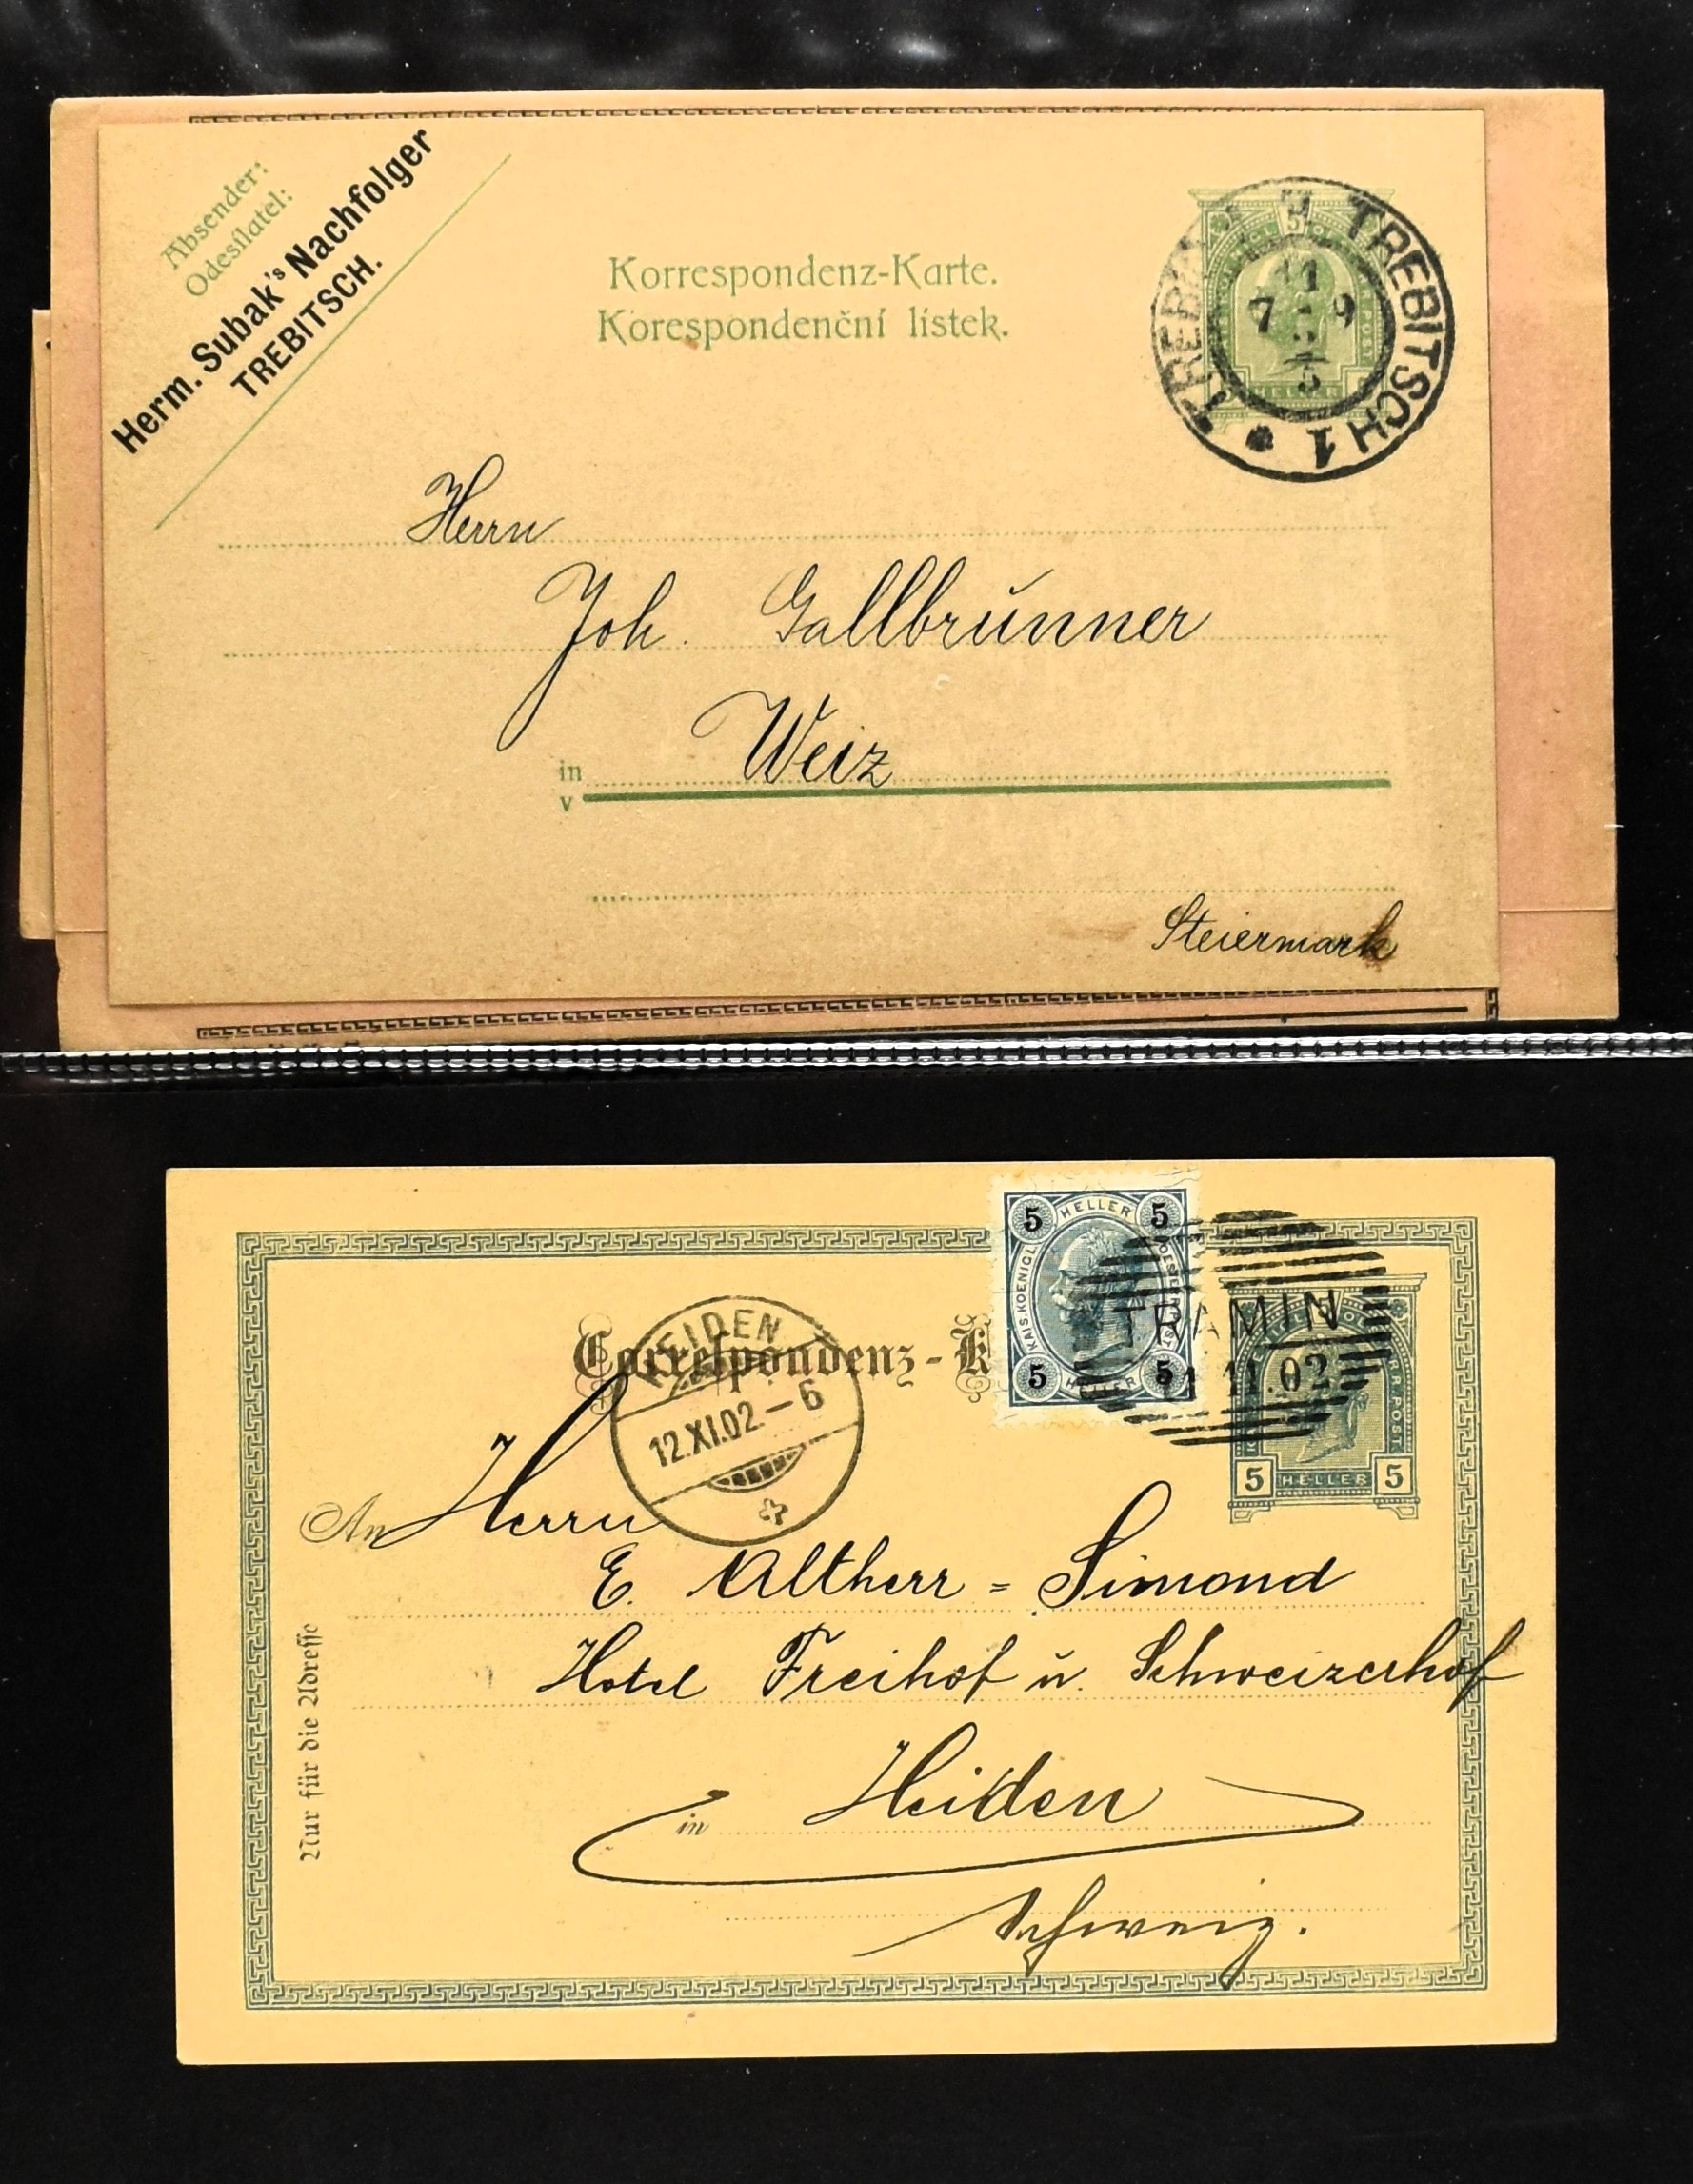 Absender:
Odesílatel:
Herm. Subak's Nachfolger
TREBITSCH.
Korrespondenz-Karte.
Korespondenční lístek.
TREBITSCH 1
HELLER
Herrn
Joh. Gallbrunner
in Weiz
v
Steiermark
5 HELLER 5
KAIS. KOENIGL.
5 HELLER 5
Correspondenz-K
TRAMIN
11.02
HEIDEN
12.XI.02.-6
5 HELLER 5
An Herrn
E. Altherr = Simond
Hotel Freihof u. Schweizerhof
in Heiden
Schweiz.
Nur für die Adresse